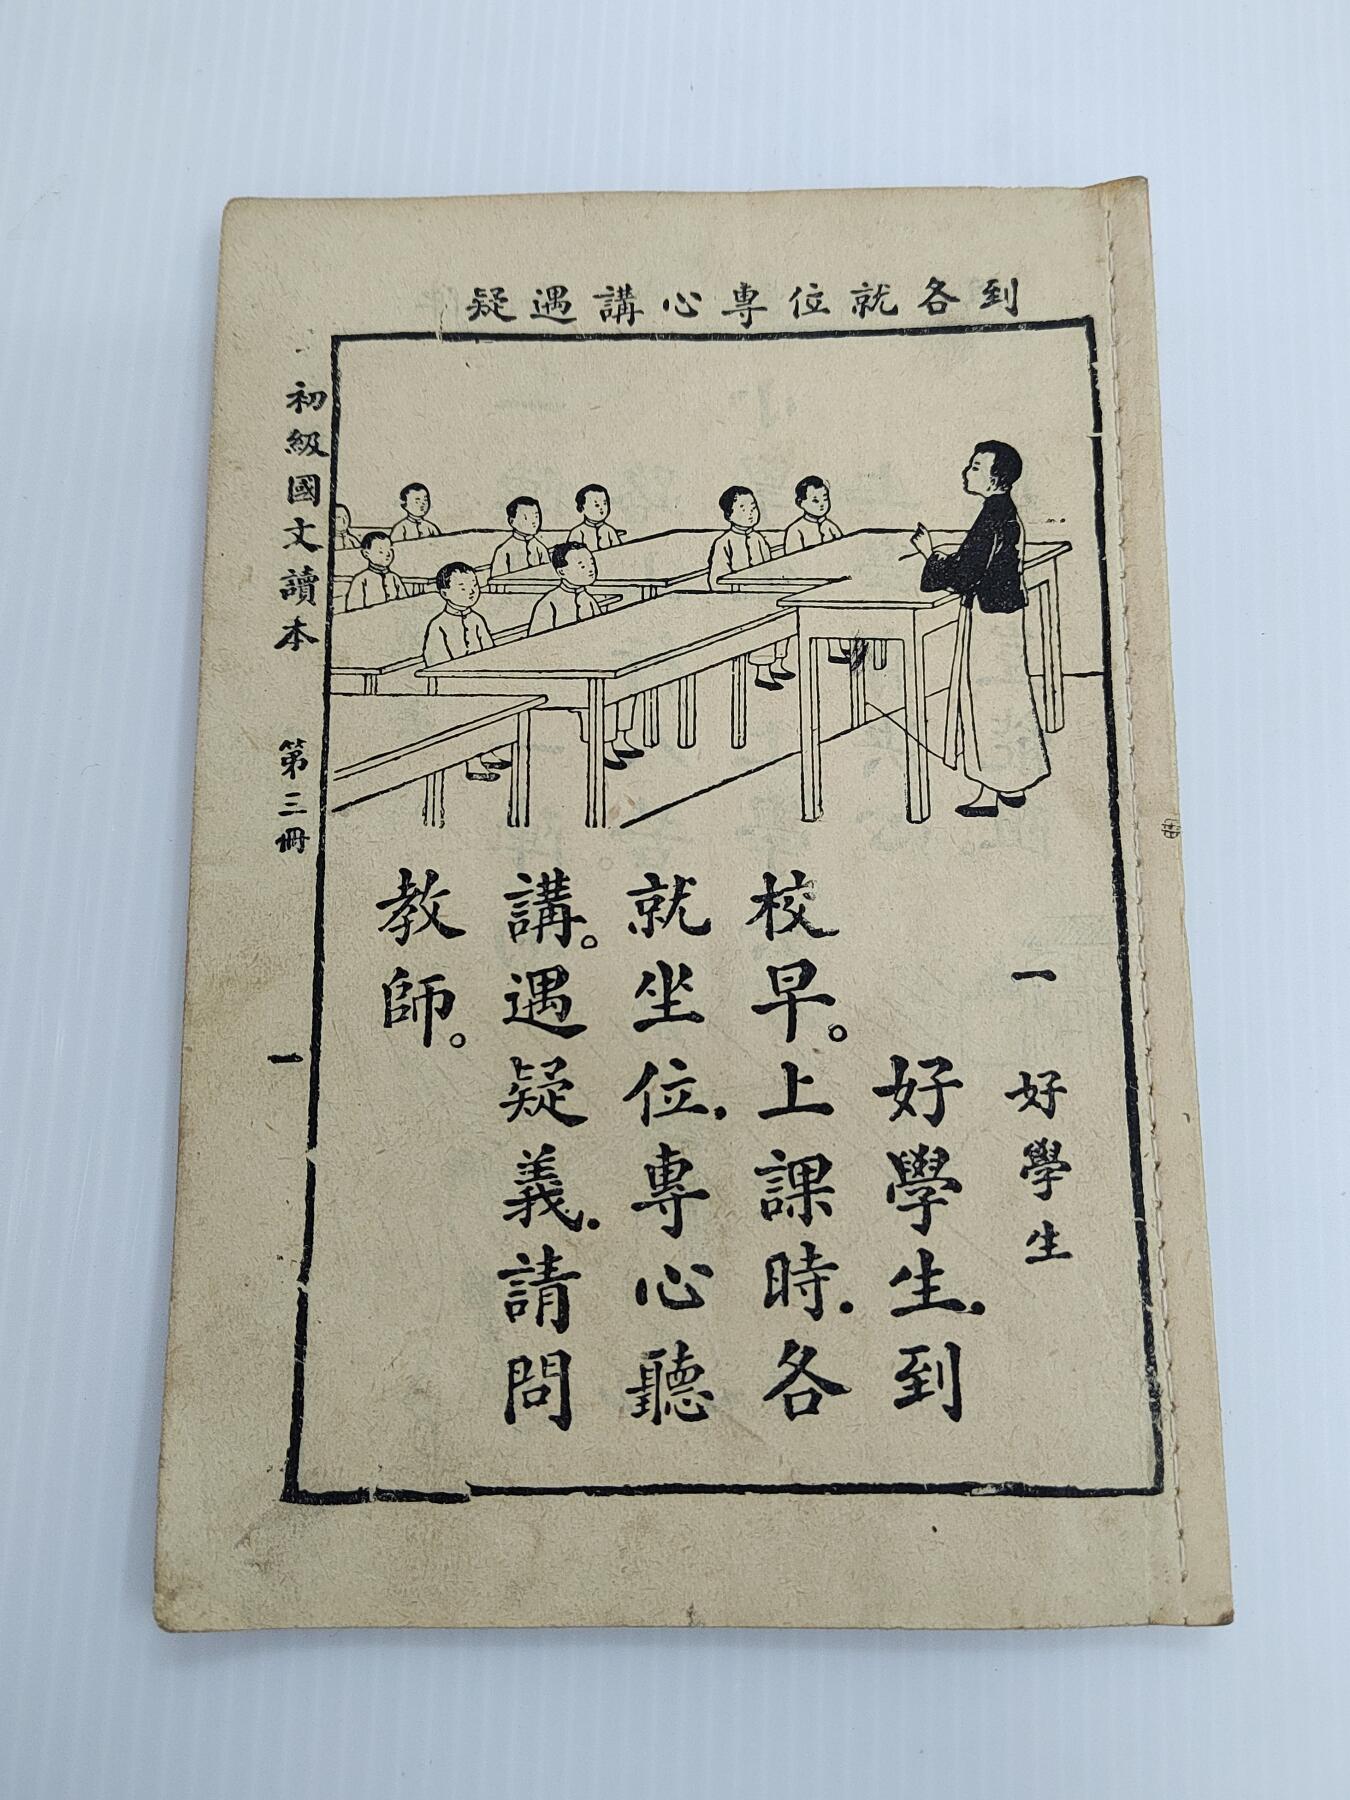 到各就位專心講遇疑
一 好學生
好學生，到
校早。上課時，各
就坐位，專心聽
講。遇疑義，請問
教師。
初級國文讀本 第三冊 一